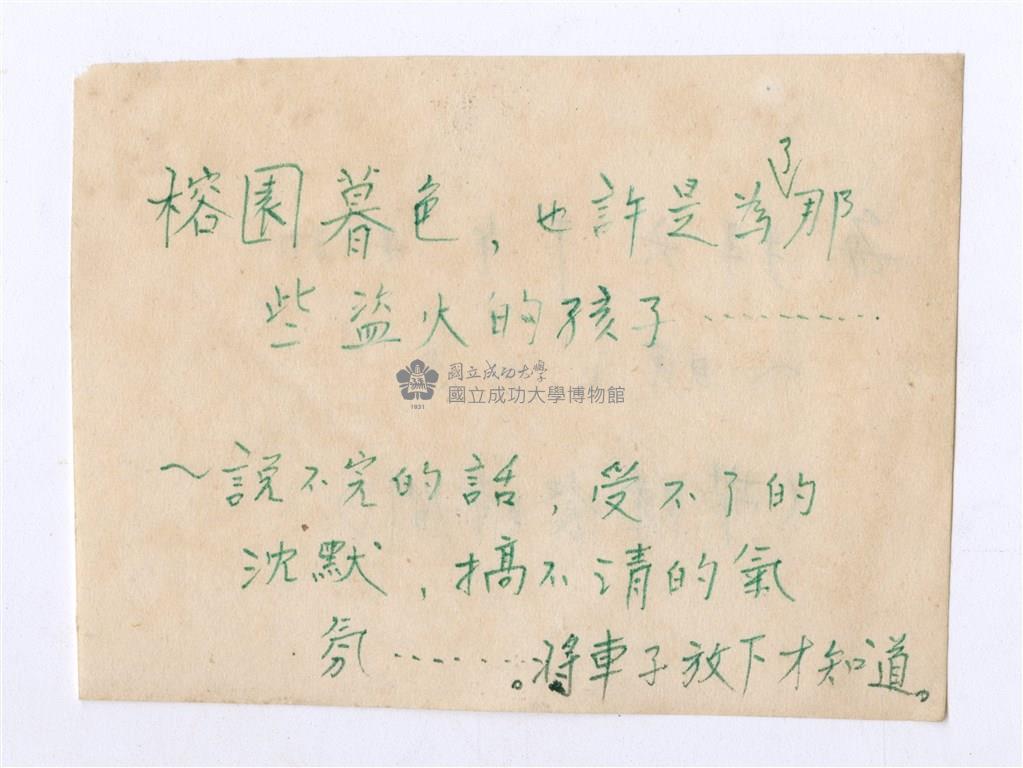 榕園暮色，也許是為了那
些盜火的孩子‥‥‥‥‥
國立成功大學
國立成功大學博物館
1931
～說不完的話，受不了的
沈默，搞不清的氣
氛‥‥‥。將車子放下才知道。